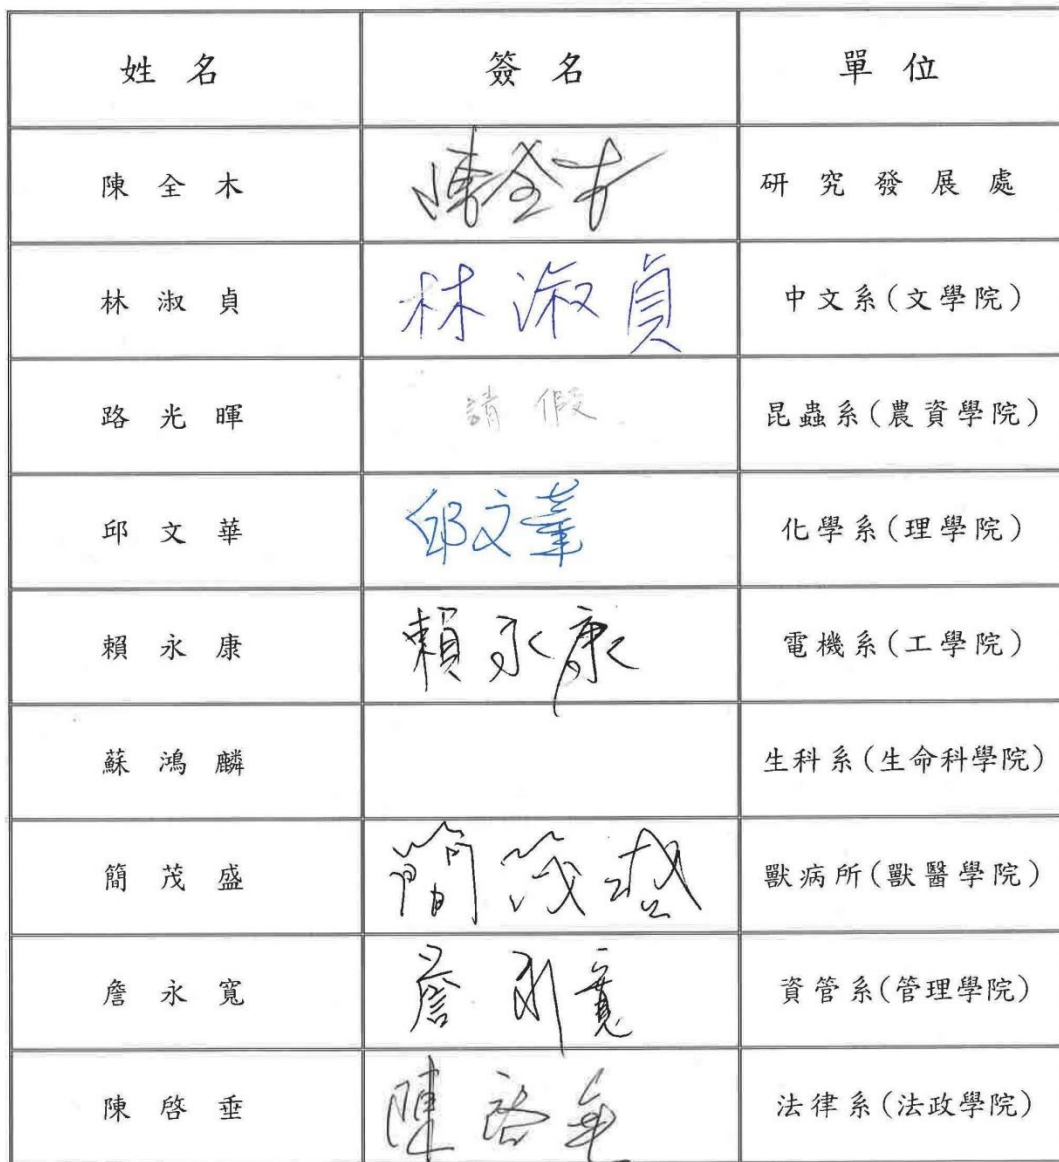 姓名 簽名 單位
陳全木 陳全木 研究發展處
林淑貞 林淑貞 中文系(文學院)
路光暉 請假 昆蟲系(農資學院)
邱文華 邱文華 化學系(理學院)
賴永康 賴永康 電機系(工學院)
蘇鴻麟 生科系(生命科學院)
簡茂盛 簡茂盛 獸病所(獸醫學院)
詹永寬 詹永寬 資管系(管理學院)
陳啓垂 陳啓垂 法律系(法政學院)